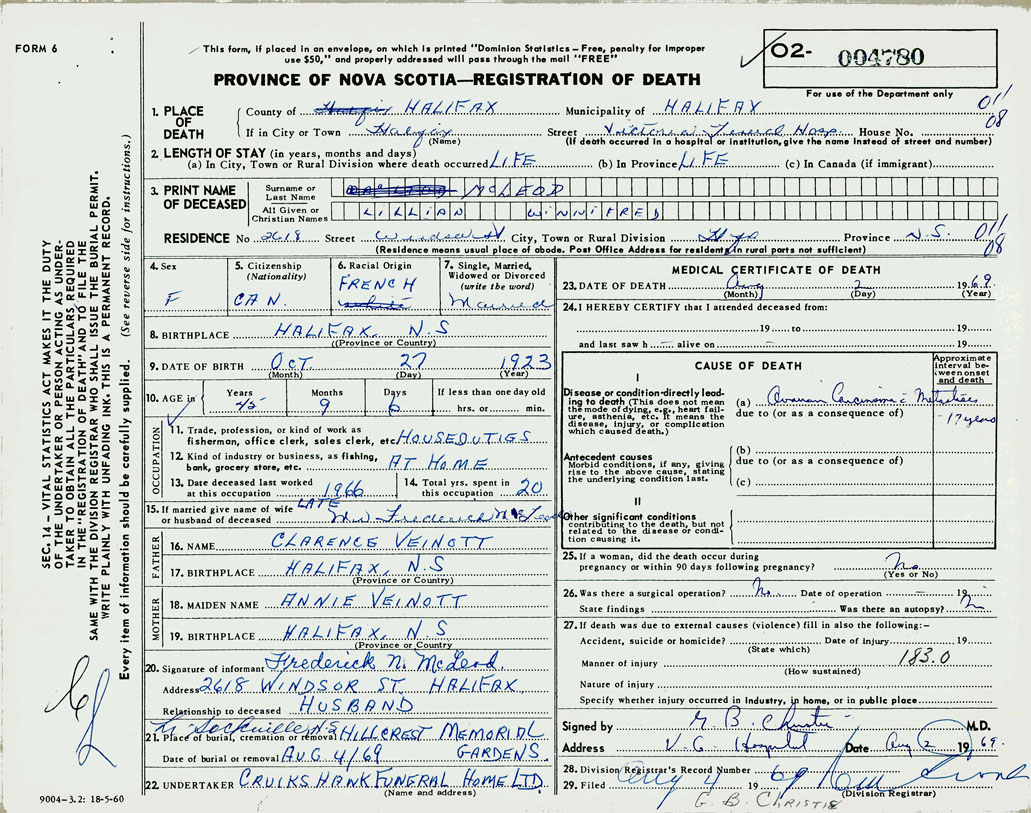 FORM 6
This form, if placed in an envelope, on which is printed "Dominion Statistics – Free, penalty for improper
use $50," and properly addressed will pass through the mail "FREE"
O2- 004780
For use of the Department only
PROVINCE OF NOVA SCOTIA—REGISTRATION OF DEATH
011
08
1. PLACE OF DEATH
County of HALIFAX Municipality of HALIFAX
If in City or Town Halifax Street Victoria General Hosp. House No.
(Name) (If death occurred in a hospital or institution, give the name instead of street and number)
2. LENGTH OF STAY (in years, months and days)
(a) In City, Town or Rural Division where death occurred LIFE (b) In Province LIFE (c) In Canada (if immigrant)
3. PRINT NAME OF DECEASED
Surname or Last Name MCLEOD
All Given or Christian Names LILLIAN WINNIFRED
RESIDENCE No 2618 Street Windsor St City, Town or Rural Division Hfx Province N.S. 011
08
(Residence means usual place of abode. Post Office Address for residents in rural parts not sufficient)
4. Sex F
5. Citizenship (Nationality) CAN.
6. Racial Origin FRENCH
7. Single, Married, Widowed or Divorced (write the word) Married
8. BIRTHPLACE HALIFAX, N.S
(Province or Country)
9. DATE OF BIRTH OCT. 27 1923
(Month) (Day) (Year)
10. AGE in Years 45 Months 9 Days 6 If less than one day old
hrs. or min.
OCCUPATION
11. Trade, profession, or kind of work as
fisherman, office clerk, sales clerk, etc. HOUSEDUTIES
12. Kind of industry or business, as fishing,
bank, grocery store, etc. AT HOME
13. Date deceased last worked
at this occupation 1966
14. Total yrs. spent in
this occupation 20
15. If married give name of wife
or husband of deceased LATE
Frederick McLeod
FATHER
16. NAME CLARENCE VEINOTT
17. BIRTHPLACE HALIFAX, N.S
(Province or Country)
MOTHER
18. MAIDEN NAME ANNIE VEINOTT
19. BIRTHPLACE HALIFAX, N.S
(Province or Country)
20. Signature of informant Frederick N. McLeod
Address 2618 WINDSOR ST. HALIFAX
Relationship to deceased HUSBAND
Sackville N.S
21. Place of burial, cremation or removal HILLCREST MEMORIAL
GARDENS.
Date of burial or removal AUG 4/69
22. UNDERTAKER CRUIKSHANK FUNERAL HOME LTD.
(Name and address)
9004-3.2: 18-5-60
MEDICAL CERTIFICATE OF DEATH
23. DATE OF DEATH Aug 2 1969
(Month) (Day) (Year)
24. I HEREBY CERTIFY that I attended deceased from:
19 to 19
and last saw h alive on 19
CAUSE OF DEATH
Approximate interval between onset and death
I
Disease or condition directly leading to death (This does not mean the mode of dying, e.g., heart failure, asthenia, etc. It means the disease, injury, or complication which caused death.)
(a) Ovarian Carcinoma c Metastases
17 years
due to (or as a consequence of)
Antecedent causes
Morbid conditions, if any, giving rise to the above cause, stating the underlying condition last.
(b)
due to (or as a consequence of)
(c)
II
Other significant conditions
contributing to the death, but not related to the disease or condition causing it.
25. If a woman, did the death occur during
pregnancy or within 90 days following pregnancy? No
(Yes or No)
26. Was there a surgical operation? No Date of operation 19
State findings Was there an autopsy? No
27. If death was due to external causes (violence) fill in also the following:–
Accident, suicide or homicide? Date of injury 19
(State which)
Manner of injury 183.0
(How sustained)
Nature of injury
Specify whether injury occurred in industry, in home, or in public place
Signed by G. B. Christie M.D.
Address V. G. Hospital Date Aug 2 1969.
28. Division Registrar's Record Number
29. Filed Aug 4 1969
(Division Registrar)
G. B. CHRISTIE
SEC. 14 – VITAL STATISTICS ACT MAKES IT THE DUTY
OF THE UNDERTAKER OR PERSON ACTING AS UNDER-
TAKER TO OBTAIN ALL THE PARTICULARS REQUIRED
IN THE "REGISTRATION OF DEATH" AND TO FILE THE
SAME WITH THE DIVISION REGISTRAR WHO SHALL ISSUE THE BURIAL PERMIT.
WRITE PLAINLY WITH UNFADING INK. THIS IS A PERMANENT RECORD.
Every item of information should be carefully supplied. (See reverse side for instructions.)